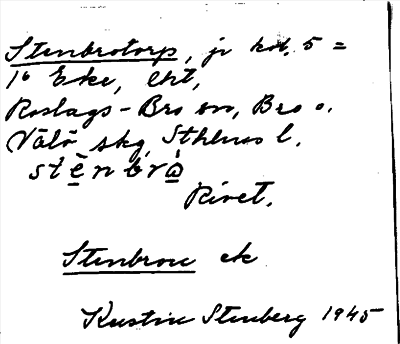 Stenbrotorp, jr hot. 5 =
16 Eke, lht,
Roslags-Bro sn, Bro o.
Vätö skg, Sthlms l.
stènbrò
Rivet.
Stenbron ek
Kerstin Stenberg 1945